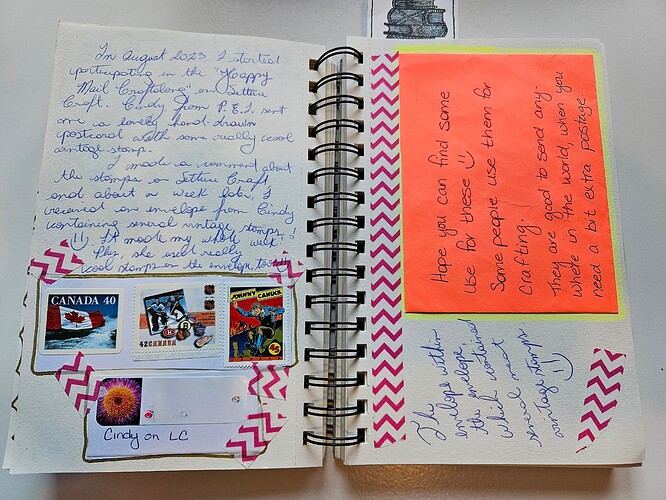 In August 2023 I started
participating in the "Happy
Mail Craftalong" on Lettuce
Craft. Cindy from P.E.I. sent
me a lovely hand-drawn
postcard with some really cool
vintage stamp.
I made a comment about
the stamps on Lettuce Craft
and about a week later, I
received an envelope from Cindy
containing several vintage stamps!
It made my whole week!
Plus, she used really
cool stamps on the envelope, too!!
CANADA 40
42 CANADA
JOHNNY CANUCK
45
Cindy on LC
Hope you can find some
Use for these
Some people use them for
Crafting.
They are good to send any-
where in the world, when you
need a bit extra postage.
The
envelope within
the envelope
which contained
several neat
vintage stamps